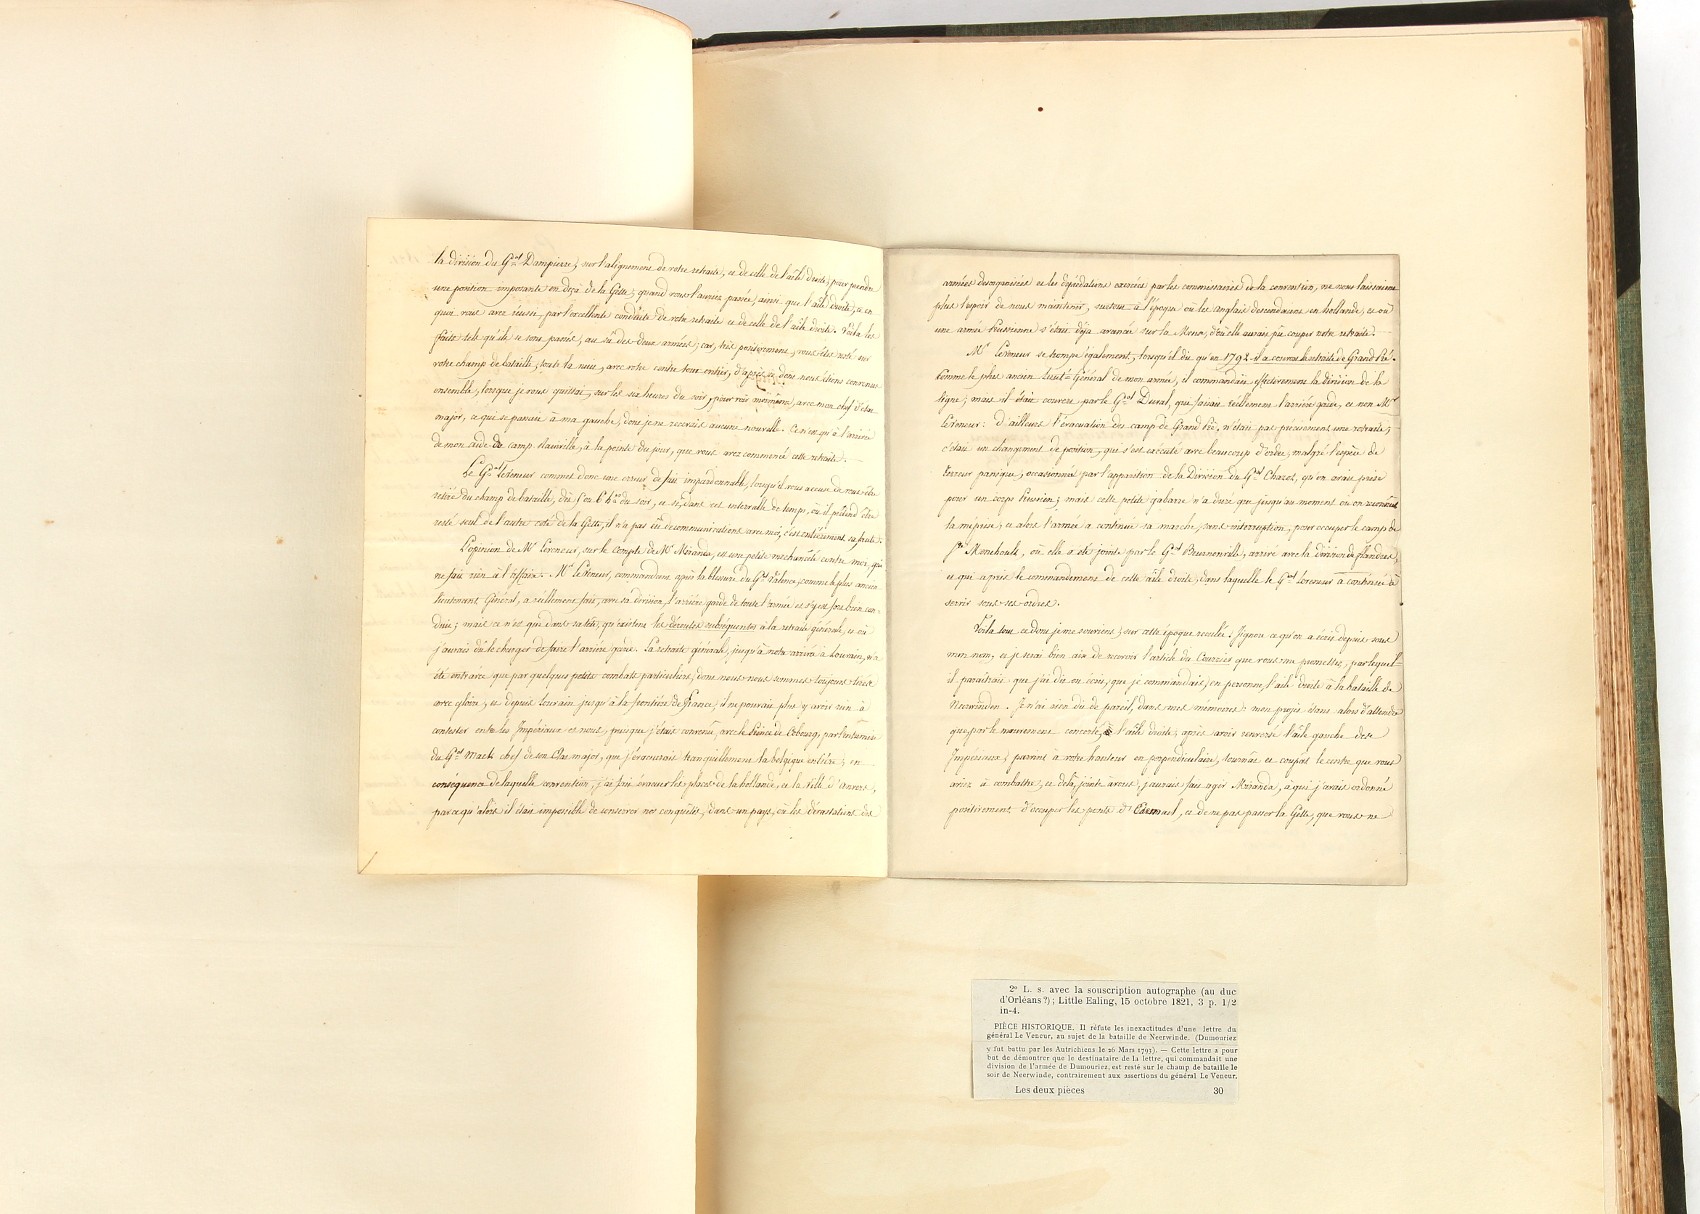 la division du Gal Dampierre, sur l'alignement de votre retraite, et de celle de l'aîle droite, pour prendre
une position imposante en deçà de la Gette, quand vous l'auriez passée, ainsi que l'aîle droite, ce en
quoi vous avez réussi, par l'excellente conduite de votre retraite et de celle de l'aîle droite. Voilà les
faits tels qu'ils se sont passés, au sû des deux armées; car, très positivement, vous êtes resté sur
votre champ de bataille, toute la nuit, avec votre centre tout entier, d'après ce dont nous étions convenus
ensemble, lorsque je vous quittai, sur les six heures du soir, pour voir moi même, avec mon chef d'état
major, ce qui se passait à ma gauche, dont je ne recevais aucune nouvelle. Ce n'est qu'à l'arrivée
de mon aide de camp Rainville, à la pointe du jour, que vous avez commencé cette retraite.
Le Gal Leveneur commet donc une erreur de fait impardonnable, lorsqu'il vous accuse de vous être
retiré du champ de bataille, dès 5 ou 6 hes du soir, et si, dans cet intervalle de temps, où il prétend être
resté seul de l'autre coté de la Gette, il n'a pas eû de communications avec moi, c'est entièrement sa faute.
L'opinion de Mr Leveneur, sur le compte de Mr Miranda, est une petite méchanceté contre moi, qui
ne fait rien à l'affaire. Mr Leveneur, commandant après la blessure du Gal Valence, comme le plus ancien
lieutenant Général, a réellement fait, avec sa division, l'arrière garde de toute l'armée et s'y est fort bien con-
duit; mais ce n'est que dans sa tête, qu'existent les déroutes subséquentes à la retraite générale, et où
j'aurais dû le charger de faire l'arrière garde. La retraite générale, jusqu'à notre arrivée à Louvain, n'a
été entravée que par quelques petits combats particuliers, dont nous nous sommes toujours tirés
avec gloire; et depuis Louvain jusqu'à la frontière de France, il ne pouvait plus y avoir rien à
contester entre les Impériaux et nous, puisque j'étais convenu, avec le Prince de Cobourg, par l'entremise
du Gal Mack chef de son Etat major, que j'évacuerais tranquillement la belgique entière; en
conséquence de laquelle convention, j'ai fait évacuer les places de la hollande, et la Ville d'Anvers,
parce qu'alors il était impossible de conserver nos conquêtes, dans un pays, où les dévastations des
armées désorganisées et les déprédations exercées par les commissaires de la convention, ne nous laissaient
plus l'espoir de nous maintenir, surtout à l'époque où les anglais descendaient en hollande, et où
une armée Prussienne s'était déja avancée sur la Meuse, d'où elle aurait pû couper notre retraite.
Mr Leveneur se trompe également, lorsqu'il dit qu'en 1792 il a couvert la retraite de Grand Pré.
Comme le plus ancien Lieutt Général de mon armée, il commandait effectivement la division de la
ligne; mais il était couvert par le Gal Duval, qui faisait réellement l'arrière garde, et non Mr
Leveneur: d'ailleurs l'évacuation du camp de Grand Pré, n'était pas précisement une retraite;
c'était un changement de position, qui s'est exécuté avec beaucoup d'ordre, malgré l'espèce de
terreur panique, occasionnée par l'apparition de la Division du Gal Chazot, qu'on avait prise
pour un corps Prussien; mais cette petite gabarre n'a duré que jusqu'au moment où on reconnut
la méprise; et alors l'armée a continué sa marche, sans interruption, pour occuper le camp de
Ste Menehould, où elle a été jointe par le Gal Beurnonville, arrivé avec la division de flandres,
et qui a pris le commandement de cette aîle droite, dans laquelle le Gal Leveneur a continué à
servir sous ses ordres.
Voilà tout ce dont je me souviens, sur cette époque reculée. J'ignore ce qu'on a écrit depuis sous
mon nom, et je serai bien aise de recevoir l'article du Courrier que vous me promettez, par lequel
il paraîtrait que j'ai dit ou écrit, que je commandais, en personne, l'aîle droite à la bataille de
Neerwinden. Je n'ai rien dit de pareil, dans mes mémoires: mon projet était alors d'attendre
que, par le mouvement concerté, l'aîle droite, après avoir renversé l'aîle gauche des
Impériaux, parvint à votre hauteur en perpendiculaire, tournât et coupât le centre que vous
aviez à combattre, et delà, jointe à vous, j'aurais fait agir Miranda, à qui j'avais ordonné
positivement d'occuper les ponts d'Eesmael, et de ne pas passer la Gette, que vous ne
2° L. s. avec la souscription autographe (au duc
d'Orléans ?) ; Little Ealing, 15 octobre 1821, 3 p. 1/2
in-4.
PIÈCE HISTORIQUE. Il réfute les inexactitudes d'une lettre du
général Le Veneur, au sujet de la bataille de Neerwinde. (Dumouriez
y fut battu par les Autrichiens le 26 Mars 1793). — Cette lettre a pour
but de démontrer que le destinataire de la lettre, qui commandait une
division de l'armée de Dumouriez, est resté sur le champ de bataille le
soir de Neerwinde, contrairement aux assertions du général Le Veneur.
Les deux pièces 30